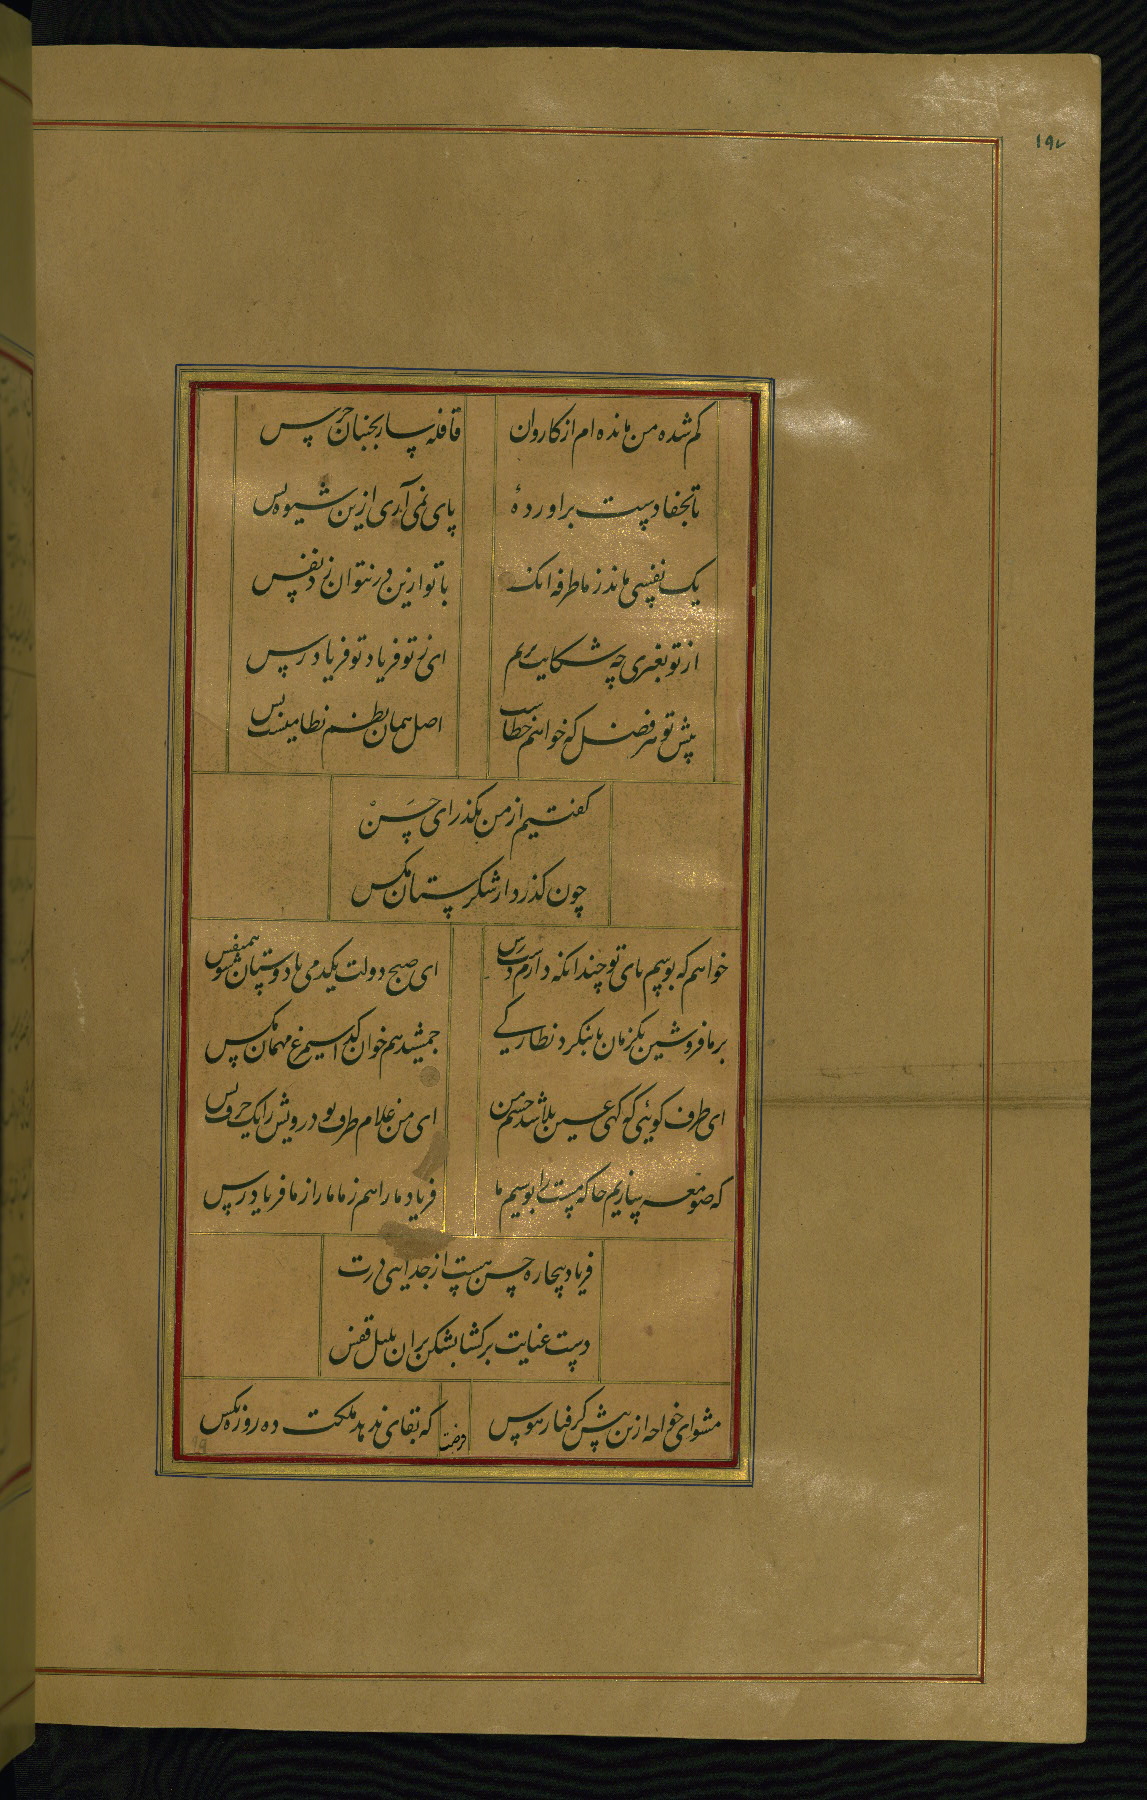 ۱۹۷
گم شده من مانده ام از کاروان
قافله سار بجنبان جرس
تا بجفا دست براوردهٔ
پای نمی آری ازین شیوه پس
یک نفسی ماند ز ما طرفه انک
با تو ازین در نتوان زد نفس
از تو بغیری چه شکایت بریم
ای ز تو فریاد تو فریاد رس
پیش تو هر فضل که خواهم خطاست
اصل همان نظم نظامیست بس
گفتیم از من بگذر ای حسن
چون گذرد از شکرستان مگس
خواهم که بوسم پای تو چندانکه دارم دست رس
ای صبح دولت یکدمی با دوستان شو همنفس
بر ما فروشین یکزمان تا بنگرد نظارگی
جمشید هم خوان گدا سیمرغ مهمان مگس
ای طرف گویئی که گهی عین بلا شد چشم من
ای من غلام طرف تو درویش را یک حرف بس
که صومعه سازیم جا که مست را بوسیم پا
فریاد ما را هم ز ما ما را ز ما فریاد رس
فریاد بیچاره حسن هست از جدایی درت
دست عنایت برگشا بشکن بران بلبل قفس
مشو ای خواجه ازین پیش گرفتار هوس
که بقای ندهد ملکت ده روزه بکس